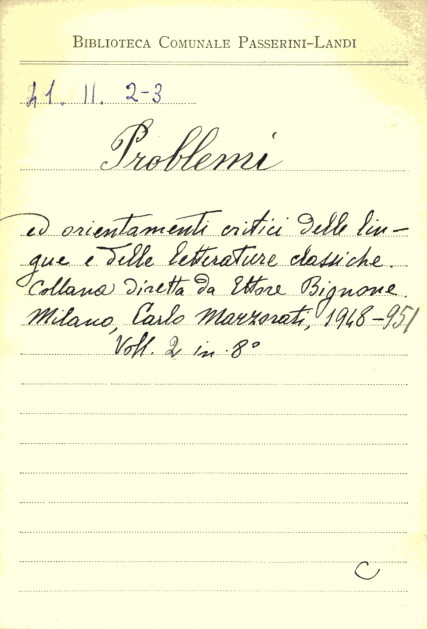 BIBLIOTECA COMUNALE PASSERINI-LANDI
41. II. 2-3
Problemi
ed orientamenti critici delle lin-
gue e delle letterature classiche.
Collana diretta da Ettore Bignone.
Milano, Carlo Marzorati, 1948-951
Voll. 2 in-8°
C